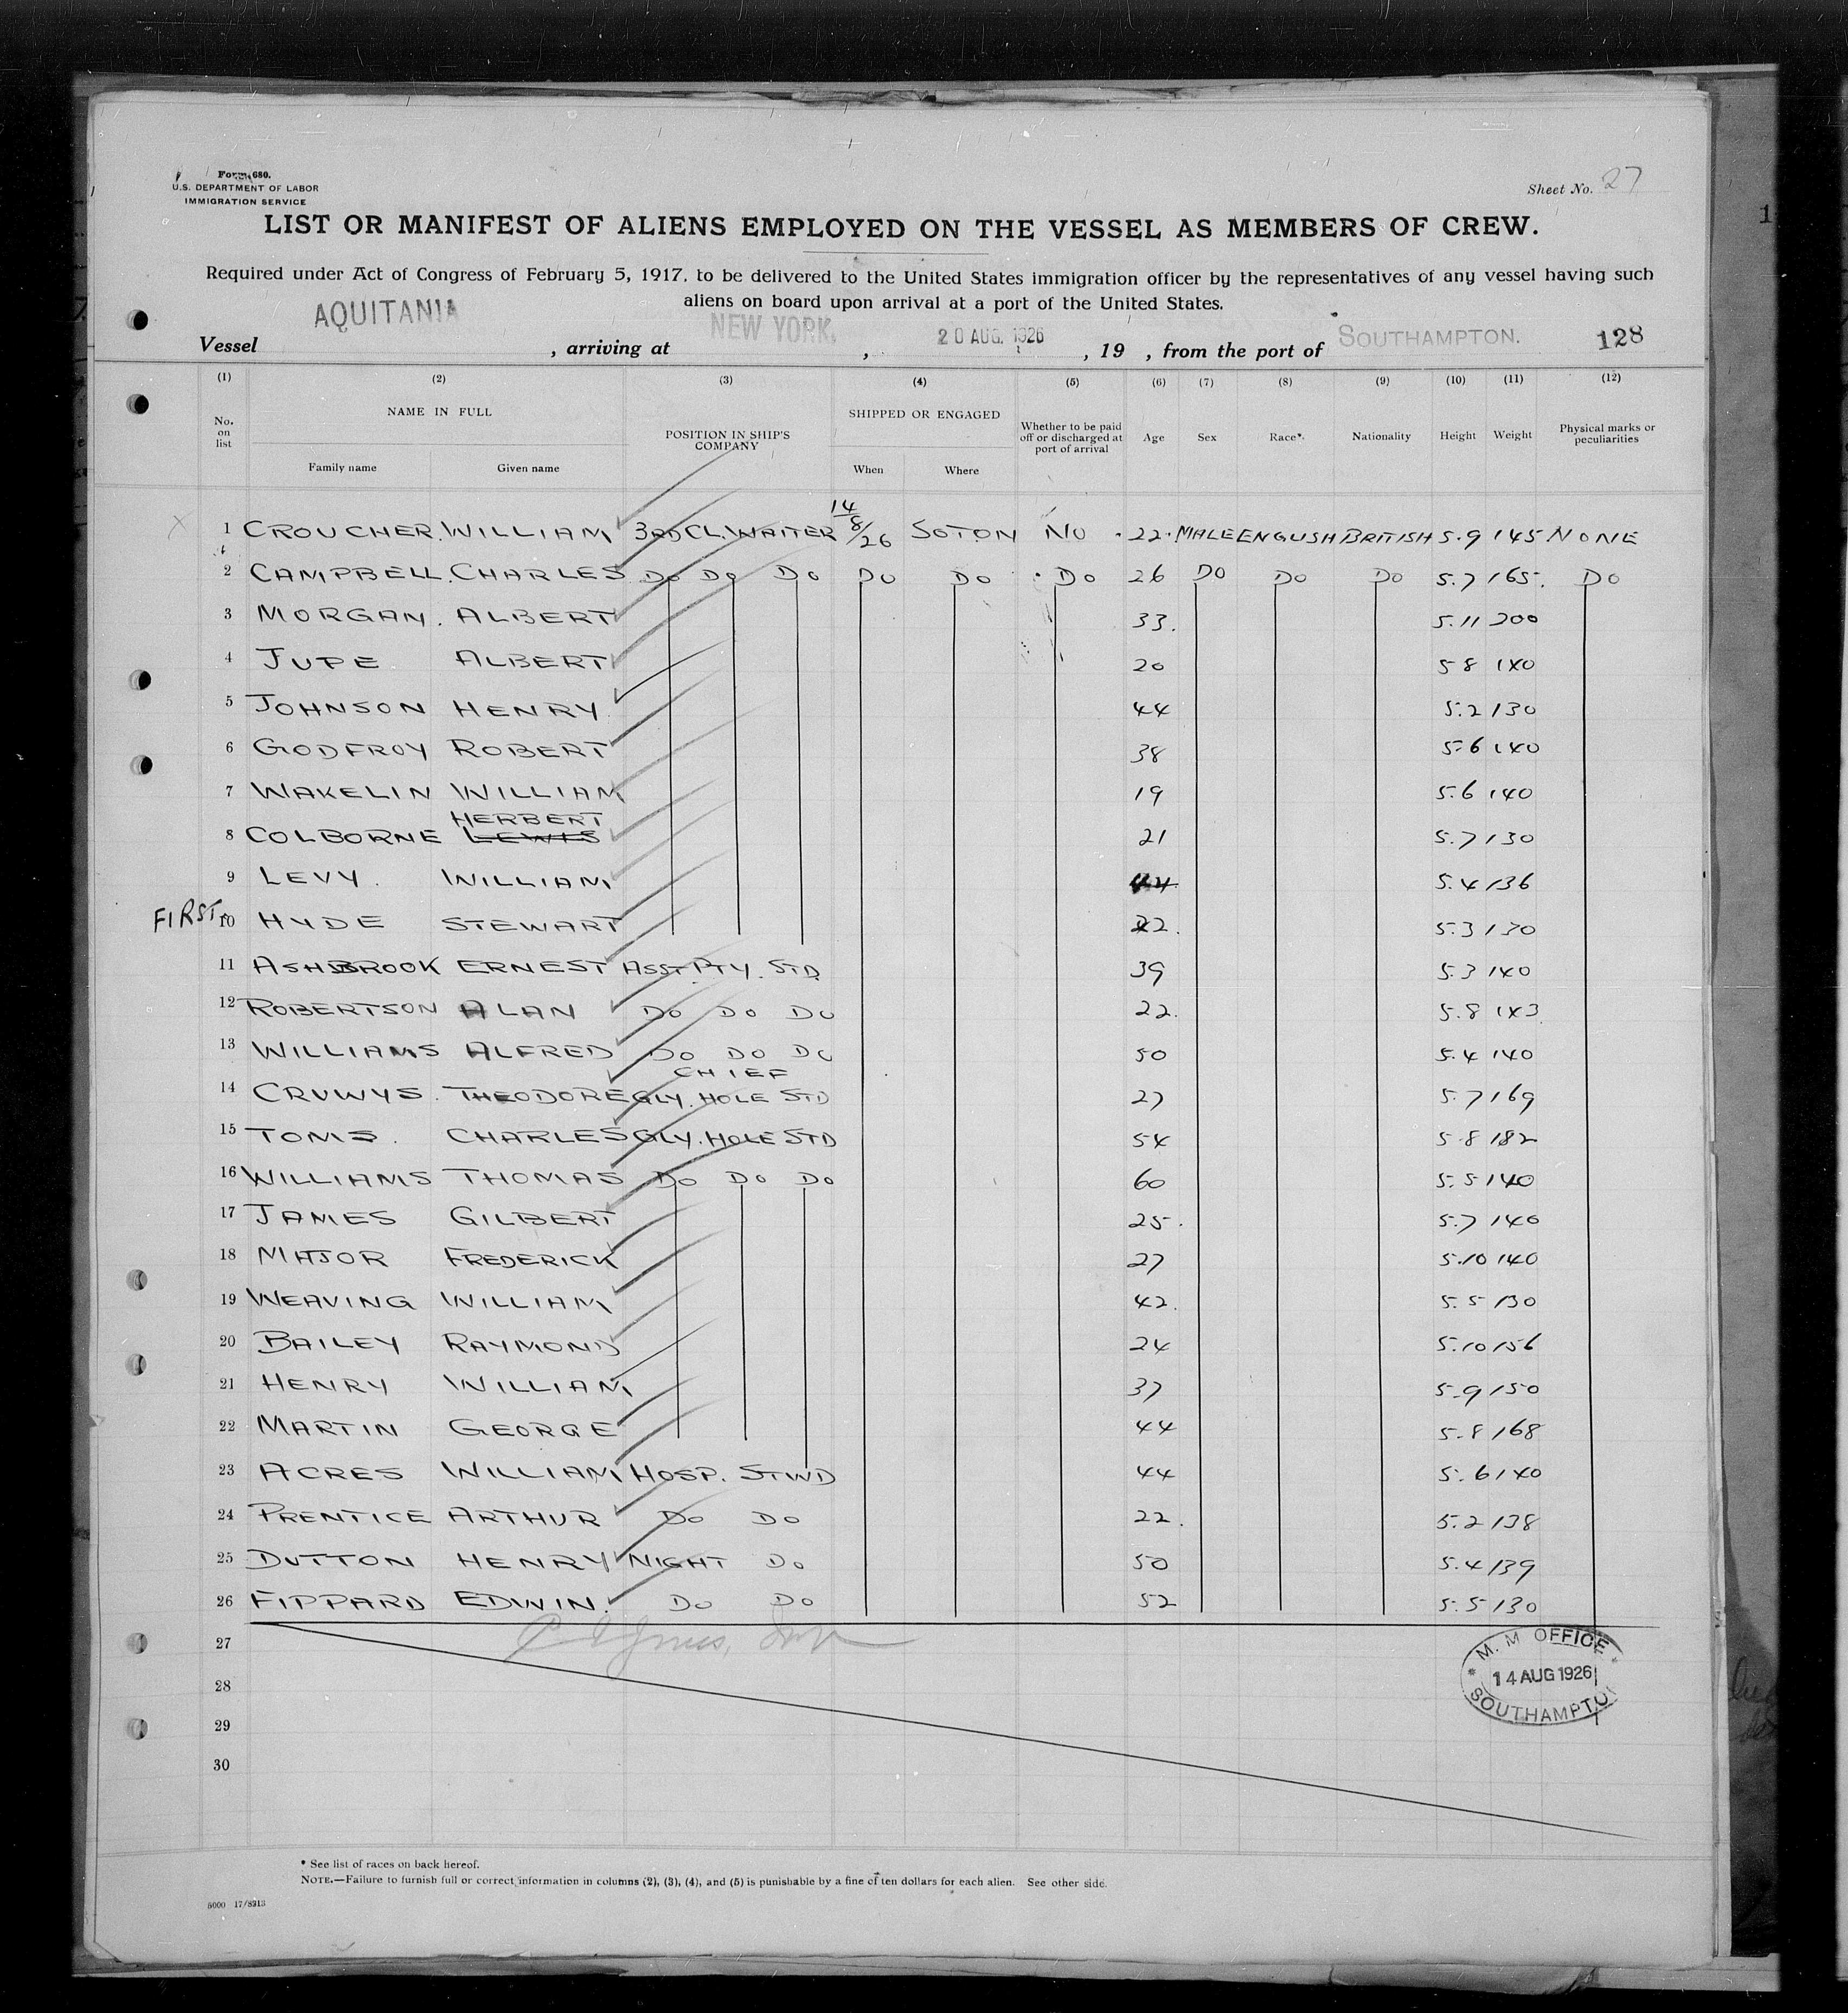 Form 680.
U.S. DEPARTMENT OF LABOR
IMMIGRATION SERVICE
Sheet No. 27
LIST OR MANIFEST OF ALIENS EMPLOYED ON THE VESSEL AS MEMBERS OF CREW.
Required under Act of Congress of February 5, 1917, to be delivered to the United States immigration officer by the representatives of any vessel having such
aliens on board upon arrival at a port of the United States.
Vessel AQUITANIA, arriving at NEW YORK, 20 AUG. 1926, 19 , from the port of SOUTHAMPTON. 128
(1) (2) (3) (4) (5) (6) (7) (8) (9) (10) (11) (12)
No. on list NAME IN FULL Family name Given name POSITION IN SHIP'S COMPANY SHIPPED OR ENGAGED When Where Whether to be paid off or discharged at port of arrival Age Sex Race*. Nationality Height Weight Physical marks or peculiarities
1 CROUCHER. WILLIAM 3RD CL. WAITER 14/8/26 SOTON NO 22 MALE ENGLISH BRITISH 5.9 145 NONE
2 CAMPBELL. CHARLES DO DO DO DO DO DO 26 DO DO DO 5.7 165. DO
3 MORGAN. ALBERT 33. 5.11 200
4 JUPE ALBERT 20 5 8 140
5 JOHNSON HENRY 44 5.2 130
6 GODFROY ROBERT 38 5.6 140
7 WAKELIN WILLIAM 19 5.6 140
HERBERT
8 COLBORNE LEWIS 21 5.7 130
9 LEVY. WILLIAM 44 5.4 136
FIRST 10 HYDE STEWART 22. 5.3 130
11 ASHBROOK ERNEST ASST PTY. STD 39 5.3 140
12 ROBERTSON ALAN DO DO DO 22. 5.8 143
13 WILLIAMS ALFRED DO DO DO 50 5.4 140
CHIEF
14 CRUWYS. THEODORE GLY. HOLE STD 27 5.7 169
15 TOMS. CHARLES GLY. HOLE STD 54 5 8 182
16 WILLIAMS THOMAS DO DO DO 60 5.5 140
17 JAMES GILBERT 25. 5.7 140
18 MAJOR FREDERICK 27 5.10 140
19 WEAVING WILLIAM 42. 5.5 130
20 BAILEY RAYMOND 24 5.10 156
21 HENRY WILLIAM 37 5.9 150
22 MARTIN GEORGE 44 5.8 168
23 ACRES WILLIAM HOSP. STWD 44 5.6 140
24 PRENTICE ARTHUR DO DO 22. 5.2 138
25 DUTTON HENRY NIGHT DO 50 5.4 139
26 FIPPARD EDWIN. DO DO 52 5.5 130
27
28
29
30
M. M OFFICE
14 AUG 1926
SOUTHAMPTO
* See list of races on back hereof.
NOTE.—Failure to furnish full or correct information in columns (2), (3), (4), and (5) is punishable by a fine of ten dollars for each alien. See other side.